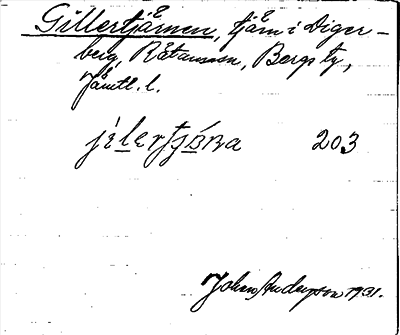 Gillertjärnen, tjärn i Diger-
berg, Rätansn, Bergs tg,
Jämtl. l.
jìlertjǿ̀ṇa 203
Johan Anderson 1931.